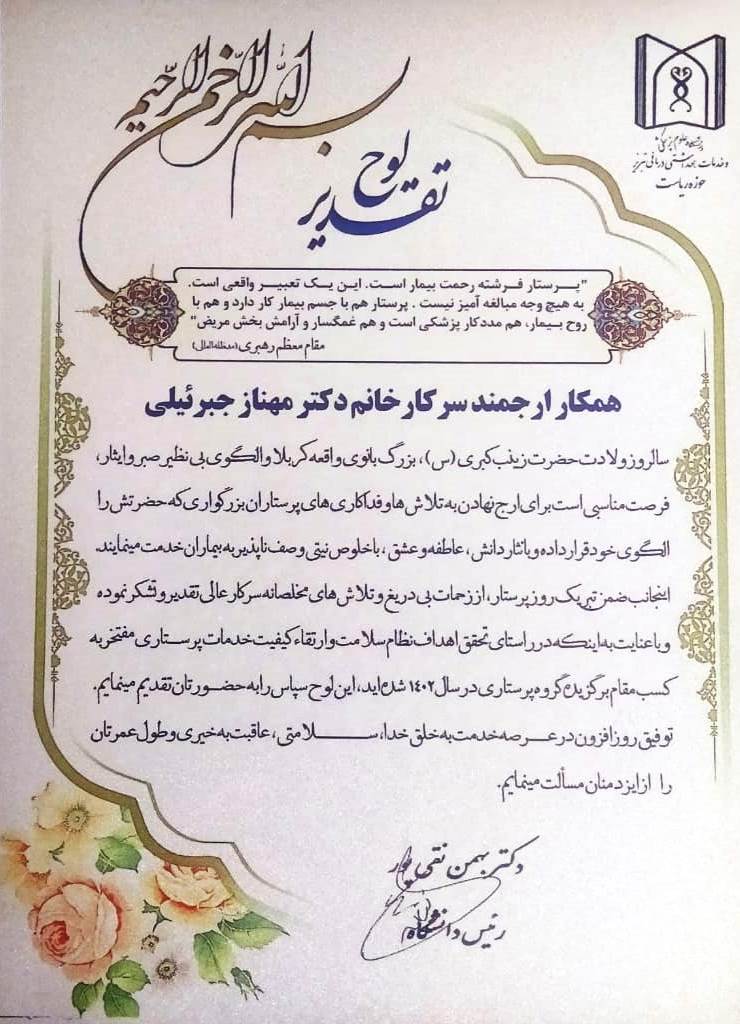 بسم الله الرحمن الرحیم
دانشگاه علوم پزشکی
و خدمات بهداشتی درمانی تبریز
حوزه ریاست
لوح
تقدیر
"پرستار فرشته رحمت بیمار است. این یک تعبیر واقعی است.
به هیچ وجه مبالغه آمیز نیست . پرستار هم با جسم بیمار کار دارد و هم با
روح بیمار، هم مددکار پزشکی است و هم غمگسار و آرامش بخش مریض"
مقام معظم رهبری (مدظله العالی)
همکار ارجمند سرکار خانم دکتر مهناز جبرئیلی
سالروز ولادت حضرت زینب کبری (س)، بزرگ بانوی واقعه کربلا و الگوی بی نظیر صبر و ایثار،
فرصت مناسبی است برای ارج نهادن به تلاش ها و فداکاری های پرستاران بزرگواری که حضرتش را
الگوی خود قرار داده و با نثار دانش، عاطفه و عشق، با خلوص نیتی وصف ناپذیر به بیماران خدمت مینمایند.
اینجانب ضمن تبریک روز پرستار، از زحمات بی دریغ و تلاش های مخلصانه سرکار عالی تقدیر و تشکر نموده
و با عنایت به اینکه در راستای تحقق اهداف نظام سلامت و ارتقاء کیفیت خدمات پرستاری مفتخر به
کسب مقام برگزیده گروه پرستاری در سال ۱۴۰۲ شده اید، این لوح سپاس را به حضورتان تقدیم مینمایم.
توفیق روز افزون در عرصه خدمت به خلق خدا، سلامتی، عاقبت به خیری و طول عمرتان
را از ایزد منان مسألت مینمایم.
دکتر بهمن نقی پور
رئیس دانشگاه